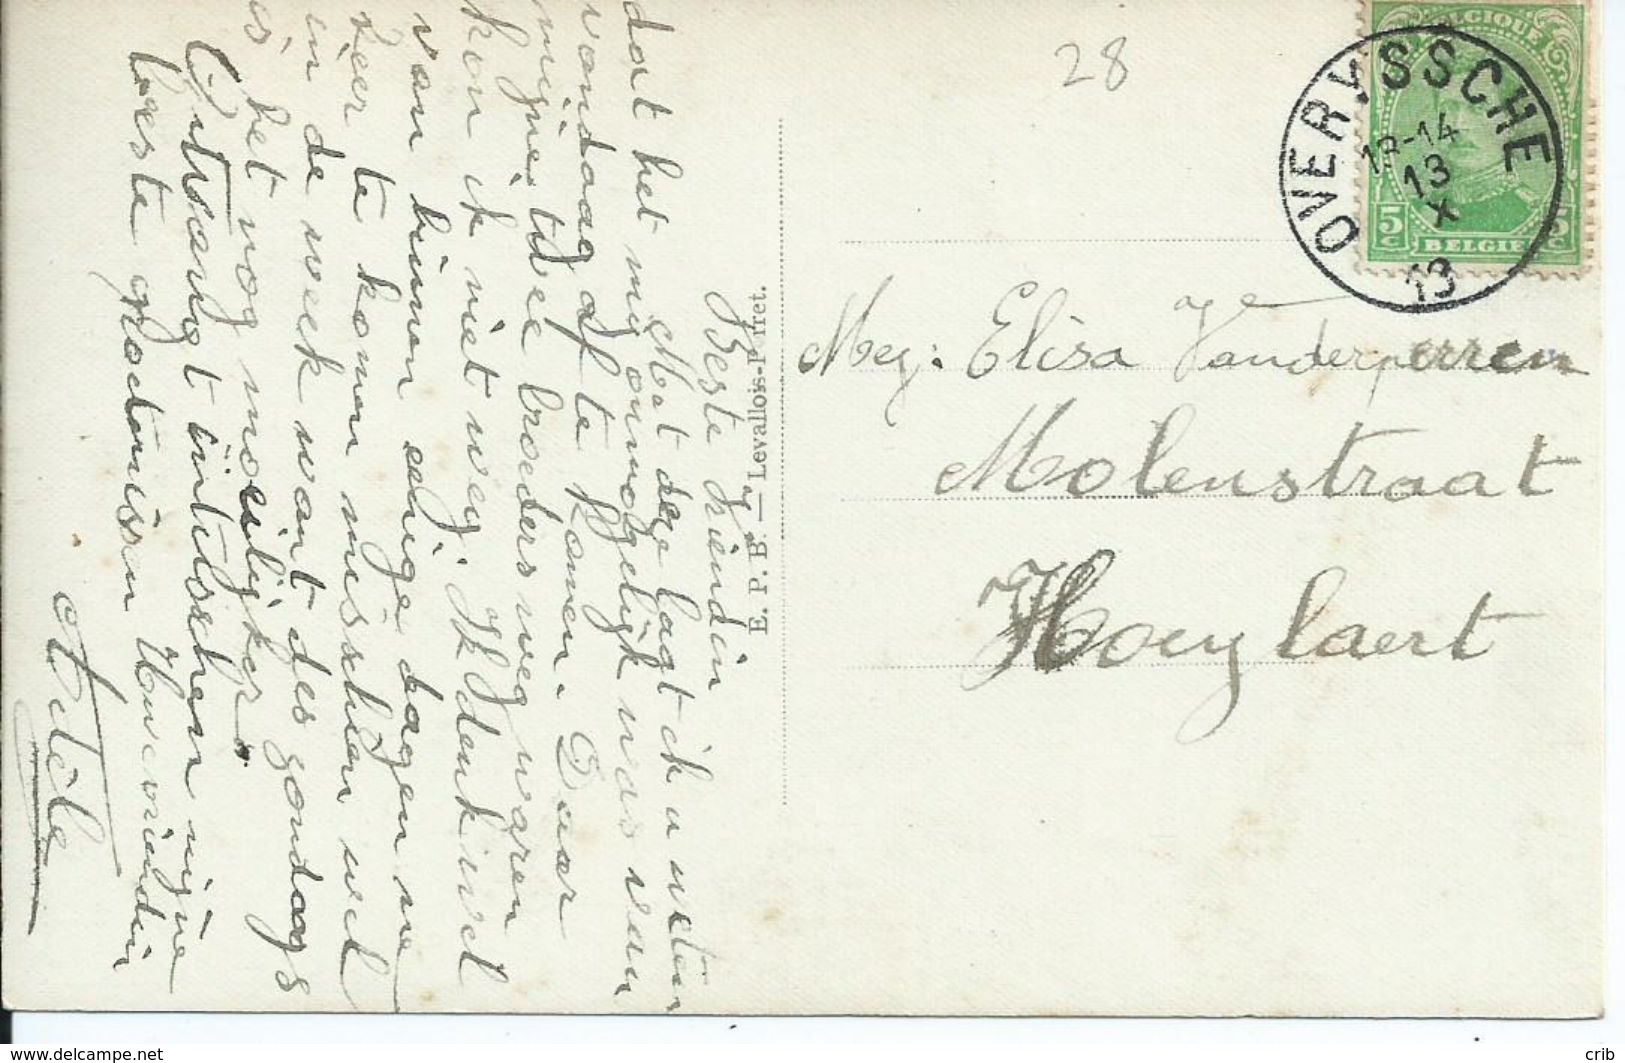 28
BELGIQUE
5c BELGIE 5c
OVERYSSCHE
13-14
13
X
19
Mej: Elisa Vanderperren
Molenstraat
Hoeylaert
E. P. B. — Levallois-Perret.
Beste Vriendin
Met deze laat ik u weten
dat het mij onmogelijk was van
vandaag af te komen. Daar
mijne twee broeders weg waren
kon ik niet weg. Ik denk wel
van binnen eenige dagen ne
keer te komen misschien wel
in de week want des zondags
is het nog moeilijker.
Ontvangt intusschen mijne
beste groetenissen Uwe vriendin
Adèle
crib
www.delcampe.net